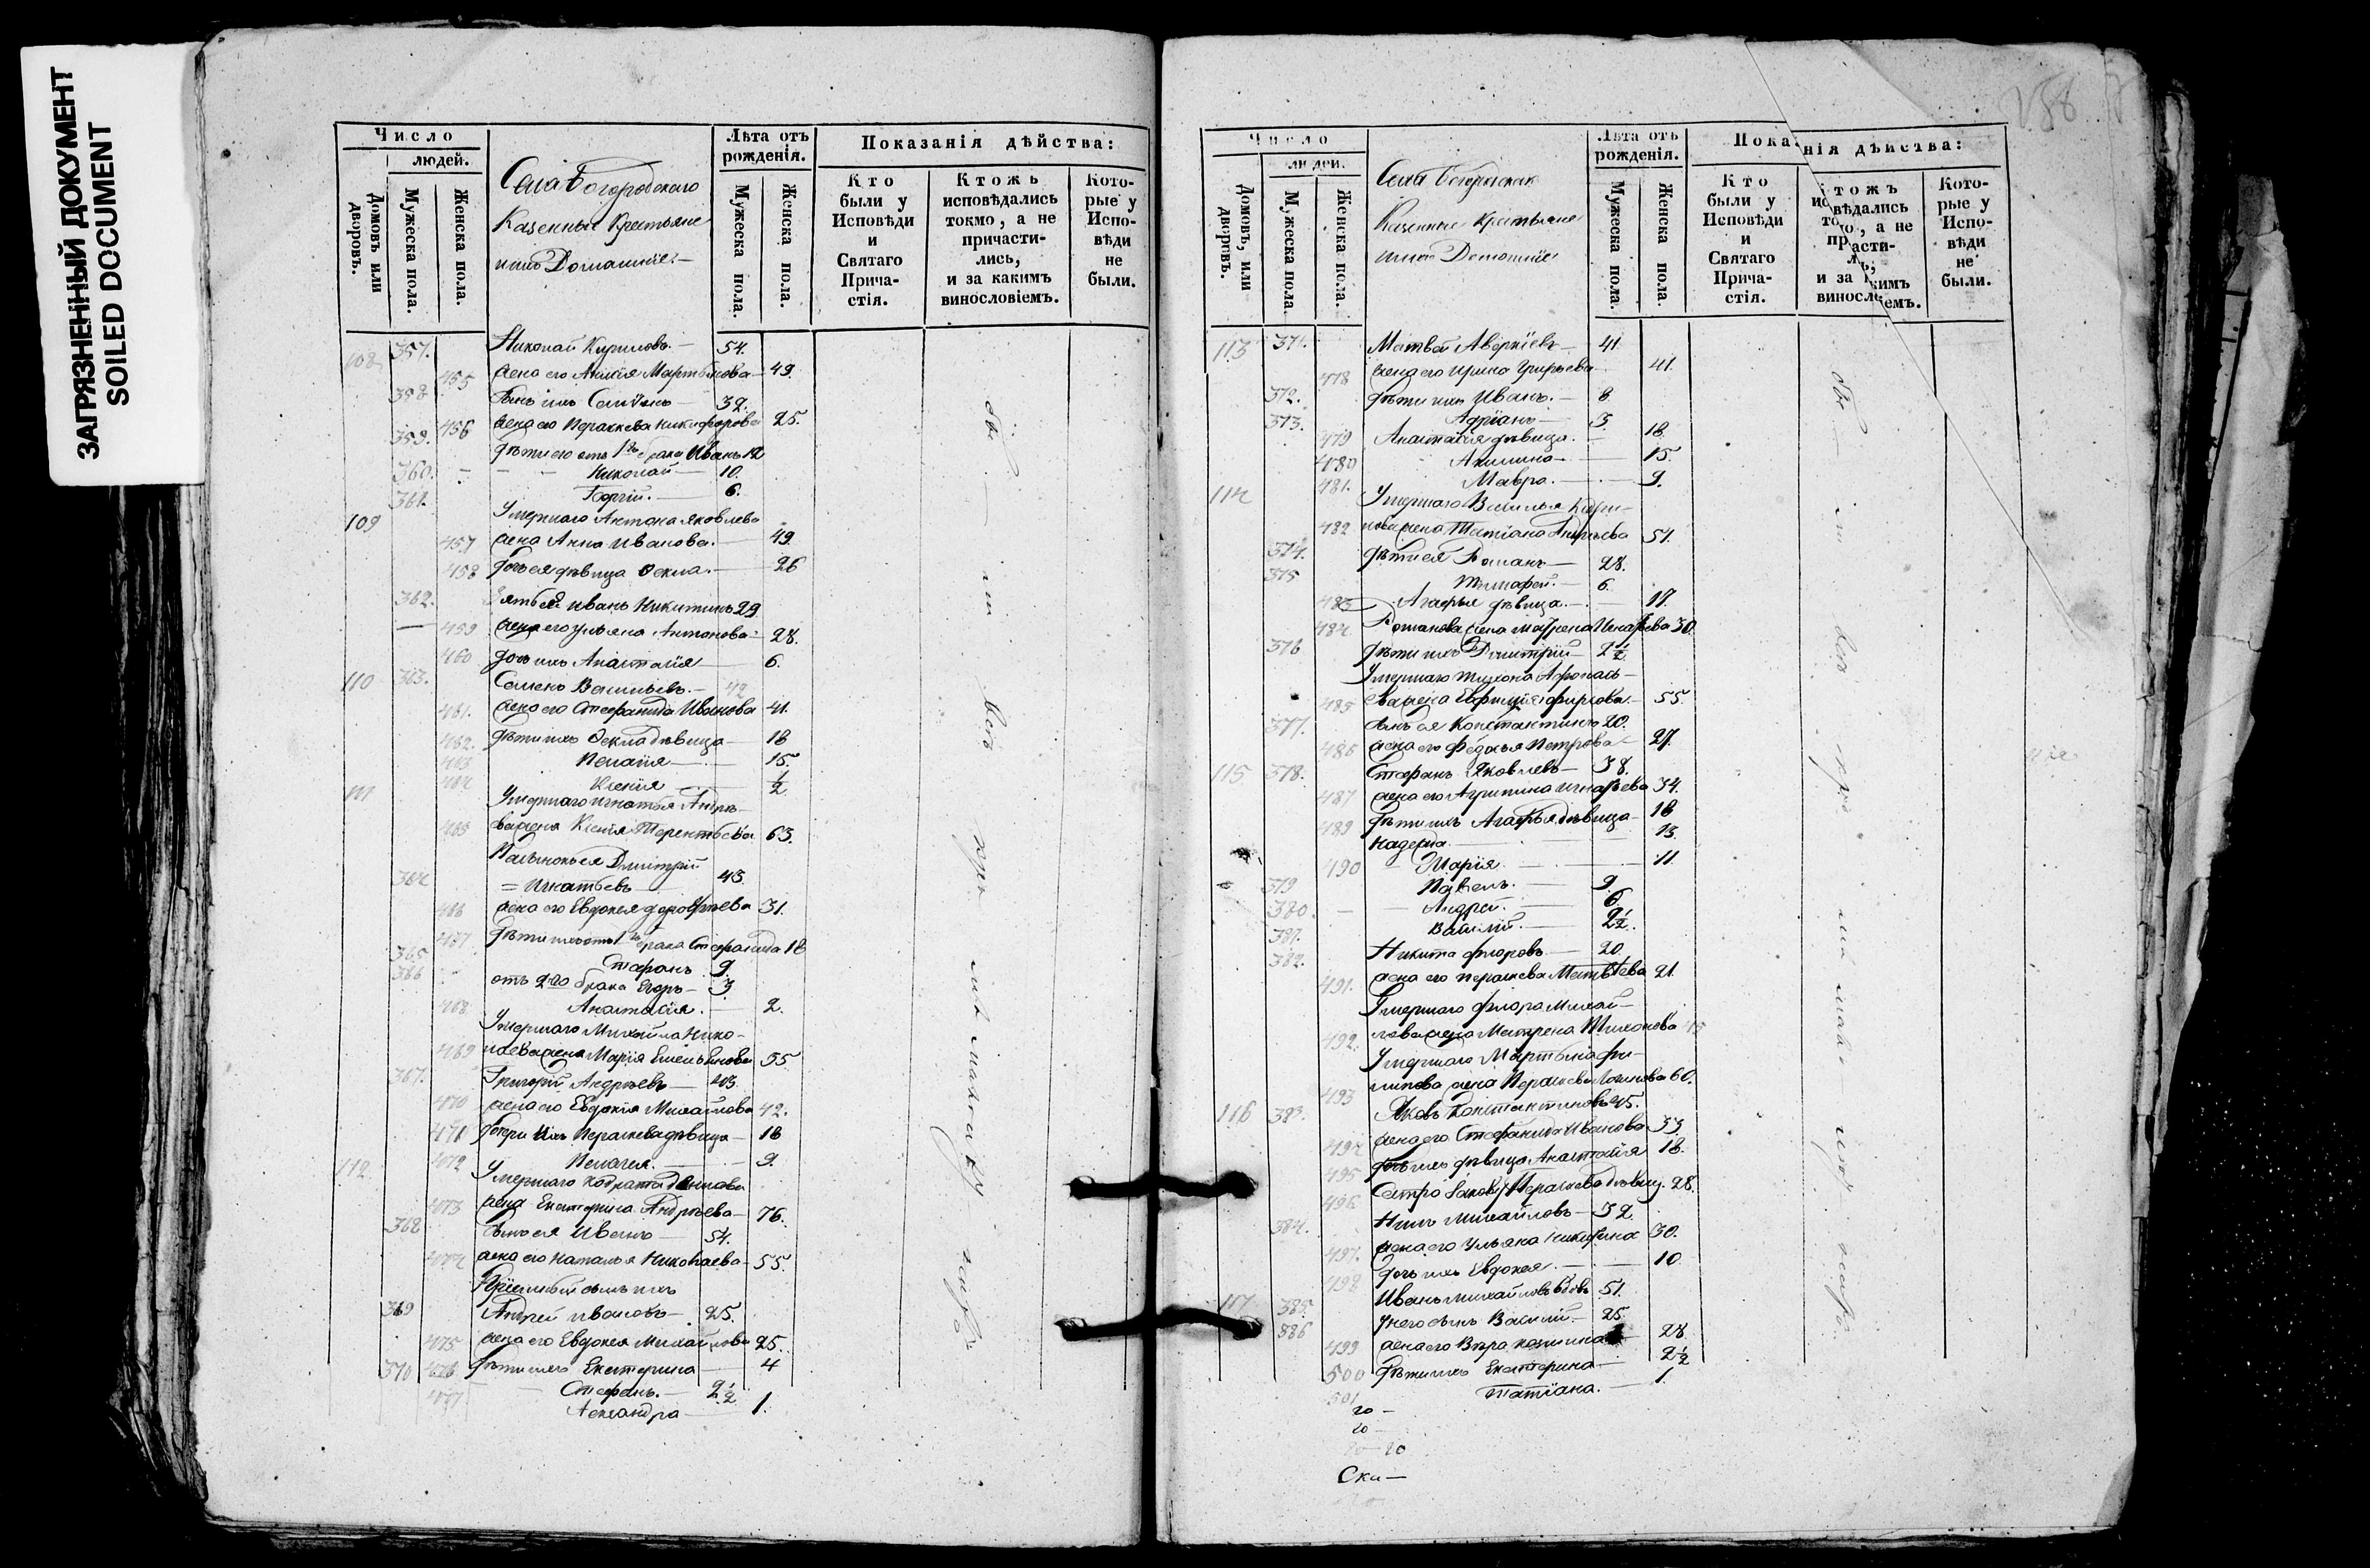 ЗАГРЯЗНЕННЫЙ ДОКУМЕНТ
SOILED DOCUMENT
Число
людей.
Домовъ или дворовъ.
Мужеска пола.
Женска пола.
Села Богородскаго
Казенные Крестьяне
Домашніе
Лѣта отъ рожденія.
Мужеска пола.
Женска пола.
Показанія дѣйства:
Кто были у Исповѣди и Святаго Прича-стія.
Ктожъ исповѣдались токмо, а не причасти-лись, и за какимъ винословіемъ.
Кото-рые у Испо-вѣди не были.
108 357. Николай Кириловъ 54.
455 жена его Мартынова 49.
358 сынъ ихъ Семіонъ 32.
456 жена его Параскева Никифорова 25.
359. дѣти его отъ 1го брака Иванъ 12
360. Николай 10.
361. Георгій. 6.
109 Умершаго Антона Яковлева
457 жена Анна Иванова. 49.
458 дочь ея дѣвица Ѳекла. 26
362. Зять ея Иванъ Никитинъ 29
459 жена его Ульяна Антонова 28.
460 дочь ихъ Анастасія 6.
110 363. Семенъ Васильевъ. 42
461. жена его Стефанида Иванова 41.
462. дѣти ихъ Ѳекла дѣвица 18
463 Пелагія 15.
464 Ксенія 1/2
111 Умершаго Игнатья Андре-
465 ева жена Ксенія Терентьева 63.
Пасынокъ ея Дмитрій
364 = Игнатьевъ 43.
466 жена его Евдокея Дорофѣева 31.
467 дѣти ихъ отъ 1го брака Стефанида 18
365 Стефанъ 9.
366 отъ 2го брака Егоръ 3
468 Анастасія. 2.
Умершаго Михайла Нико-
469 лаева жена Марія Емельянова 55
367. Григорій Андреевъ 43.
470 жена его Евдокія Михайлова 42.
471 дочери ихъ Параскева дѣвица 18
472 Пелагея. 9.
112 Умершаго Кодрата Данилова
473 жена Екатерина Андреева 76.
368 сынъ ея Иванъ 54.
474 жена его Наталья Николаева 55.
Пріемный сынъ ихъ
369 Андрей Ивановъ 25.
475 жена его Евдокея Михайлова 25.
370 476 дѣти ихъ Екатерина 4
Стефанъ. 2 1/2
477 Александра 1.
Число
людей.
Домовъ, или дворовъ.
Мужеска пола
Женска пола.
Села Богородскаго
Казенные Крестьяне
Домашніе
Лѣта отъ рожденія.
Мужеска пола.
Женска пола.
Показанія дѣйства:
Кто были у Исповѣди и Святаго Прича-стія.
Ктожъ исповѣдались токмо, а не причасти-лись, и за какимъ винословіемъ.
Кото-рые у Испо-вѣди не были.
113 371. Матвѣй Аверкіевъ 41
478 жена его Ирина Григорьева 41.
372. дѣти ихъ Иванъ. 8
373. Адріанъ 3
479 Анастасія дѣвица. 18.
480 Акилина 15.
481. Мавра. 9.
114 Умершаго Василья Кири-
482 лова жена Татіана Андреева 51.
374. дѣти ея Романъ 28.
375 Тимофей. 6.
483 Агафья дѣвица. 17.
484 Романова жена Матрена Игнатьева 30.
376 дѣти ихъ Дмитрій 2 1/2
Умершаго Тихона Афонась-
485 ева жена 55.
377. сынъ ея Константинъ 20.
486 жена его Ѳедосья Петрова 27.
115 378. Стефанъ Яковлевъ 38.
487 жена его Агрипина Игнатьева 34.
489 дѣти ихъ Агафья дѣвица 18
Надежда 13.
490 Марія 11
379 Павелъ. 9
380. Андрей. 6
381. Василій. 2 1/2.
382. Никита Флоровъ 20.
491. жена его Параскева Матвѣева 21.
Умершаго Флора Михай-
492. лова жена Матрена Тихонова 45
Умершаго Мартына Фи-
493 липова жена Параскева Логинова 60.
116 383. Яковъ Константиновъ 45.
494 жена его Стефанида Иванова 33.
495 дочь ихъ дѣвица Анастасія 18.
496 сестра Якову Параскева дѣвиц. 28.
384. Нилъ Михайловъ 32.
497. жена его Ульяна Никитина 30.
498 дочь ихъ Евдокея. 10
117 385. Иванъ Михайловъ вдовъ 51.
386 у него сынъ Василій 25
499 жена его Вѣра 28.
500 дѣти ихъ Екатерина 2 1/2
501 Татіана. 1.